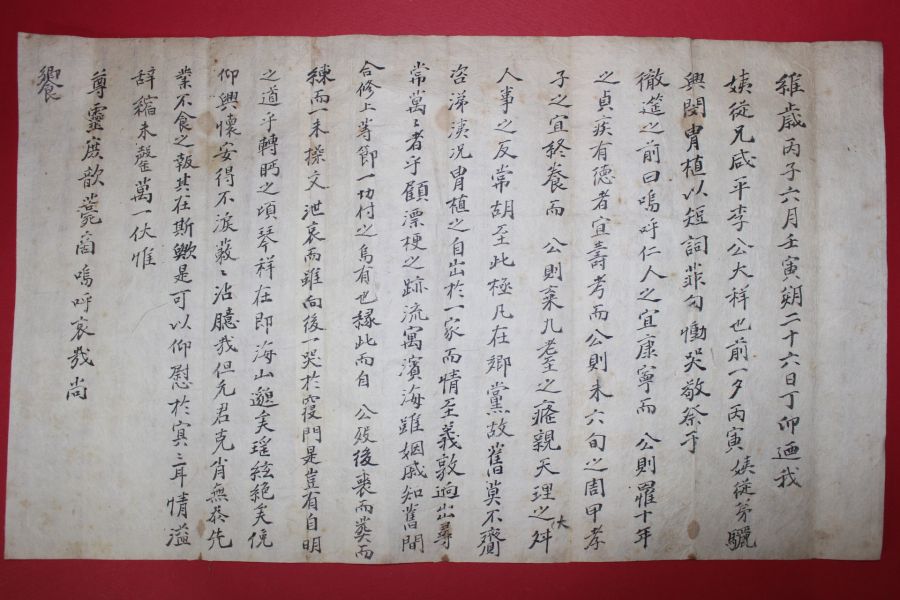 維歲丙子六月壬寅朔二十六日丁卯廼我
姨從兄咸平李公大祥也前一夕丙寅 姨從弟驪
興閔胄植以短詞菲句慟哭敬祭于
徹筵之前曰嗚呼仁人之宜康寧而 公則罹十年
之貞疾有德者宜壽考而公則未六旬之周甲孝
子之宜終養而 公則棄九耋之癃親天理之舛
人事之反常胡至此極凡在鄕黨故舊莫不齎
咨涕洟况胄植之自出於一家而情至義敦逈出尋
常萬〻者乎顧漂梗之跡流寓濱海雖姻戚知舊間
合修上等節一切付之烏有也緣此而自 公歿後喪而葬而
練而一未操文泄哀而雖向後一哭於窆門是豈有自明
之道乎轉眄之頃琴祥在卽海山邈矣瑤絃絶矣俛
仰興懷安得不淚蔌〻沾臆哉但允君克肖無忝先
業不食之報其在斯歟是可以仰慰於冥〻耳情溢
辞縮未罄萬一伏惟
尊靈庶歆菲㐭嗚呼哀哉尚
饗